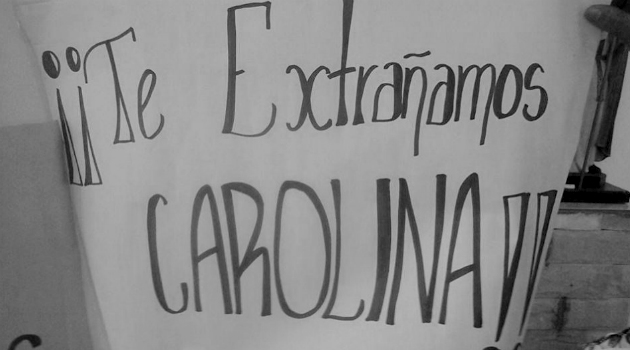 ¡¡Te Extrañamos
CAROLINA!!